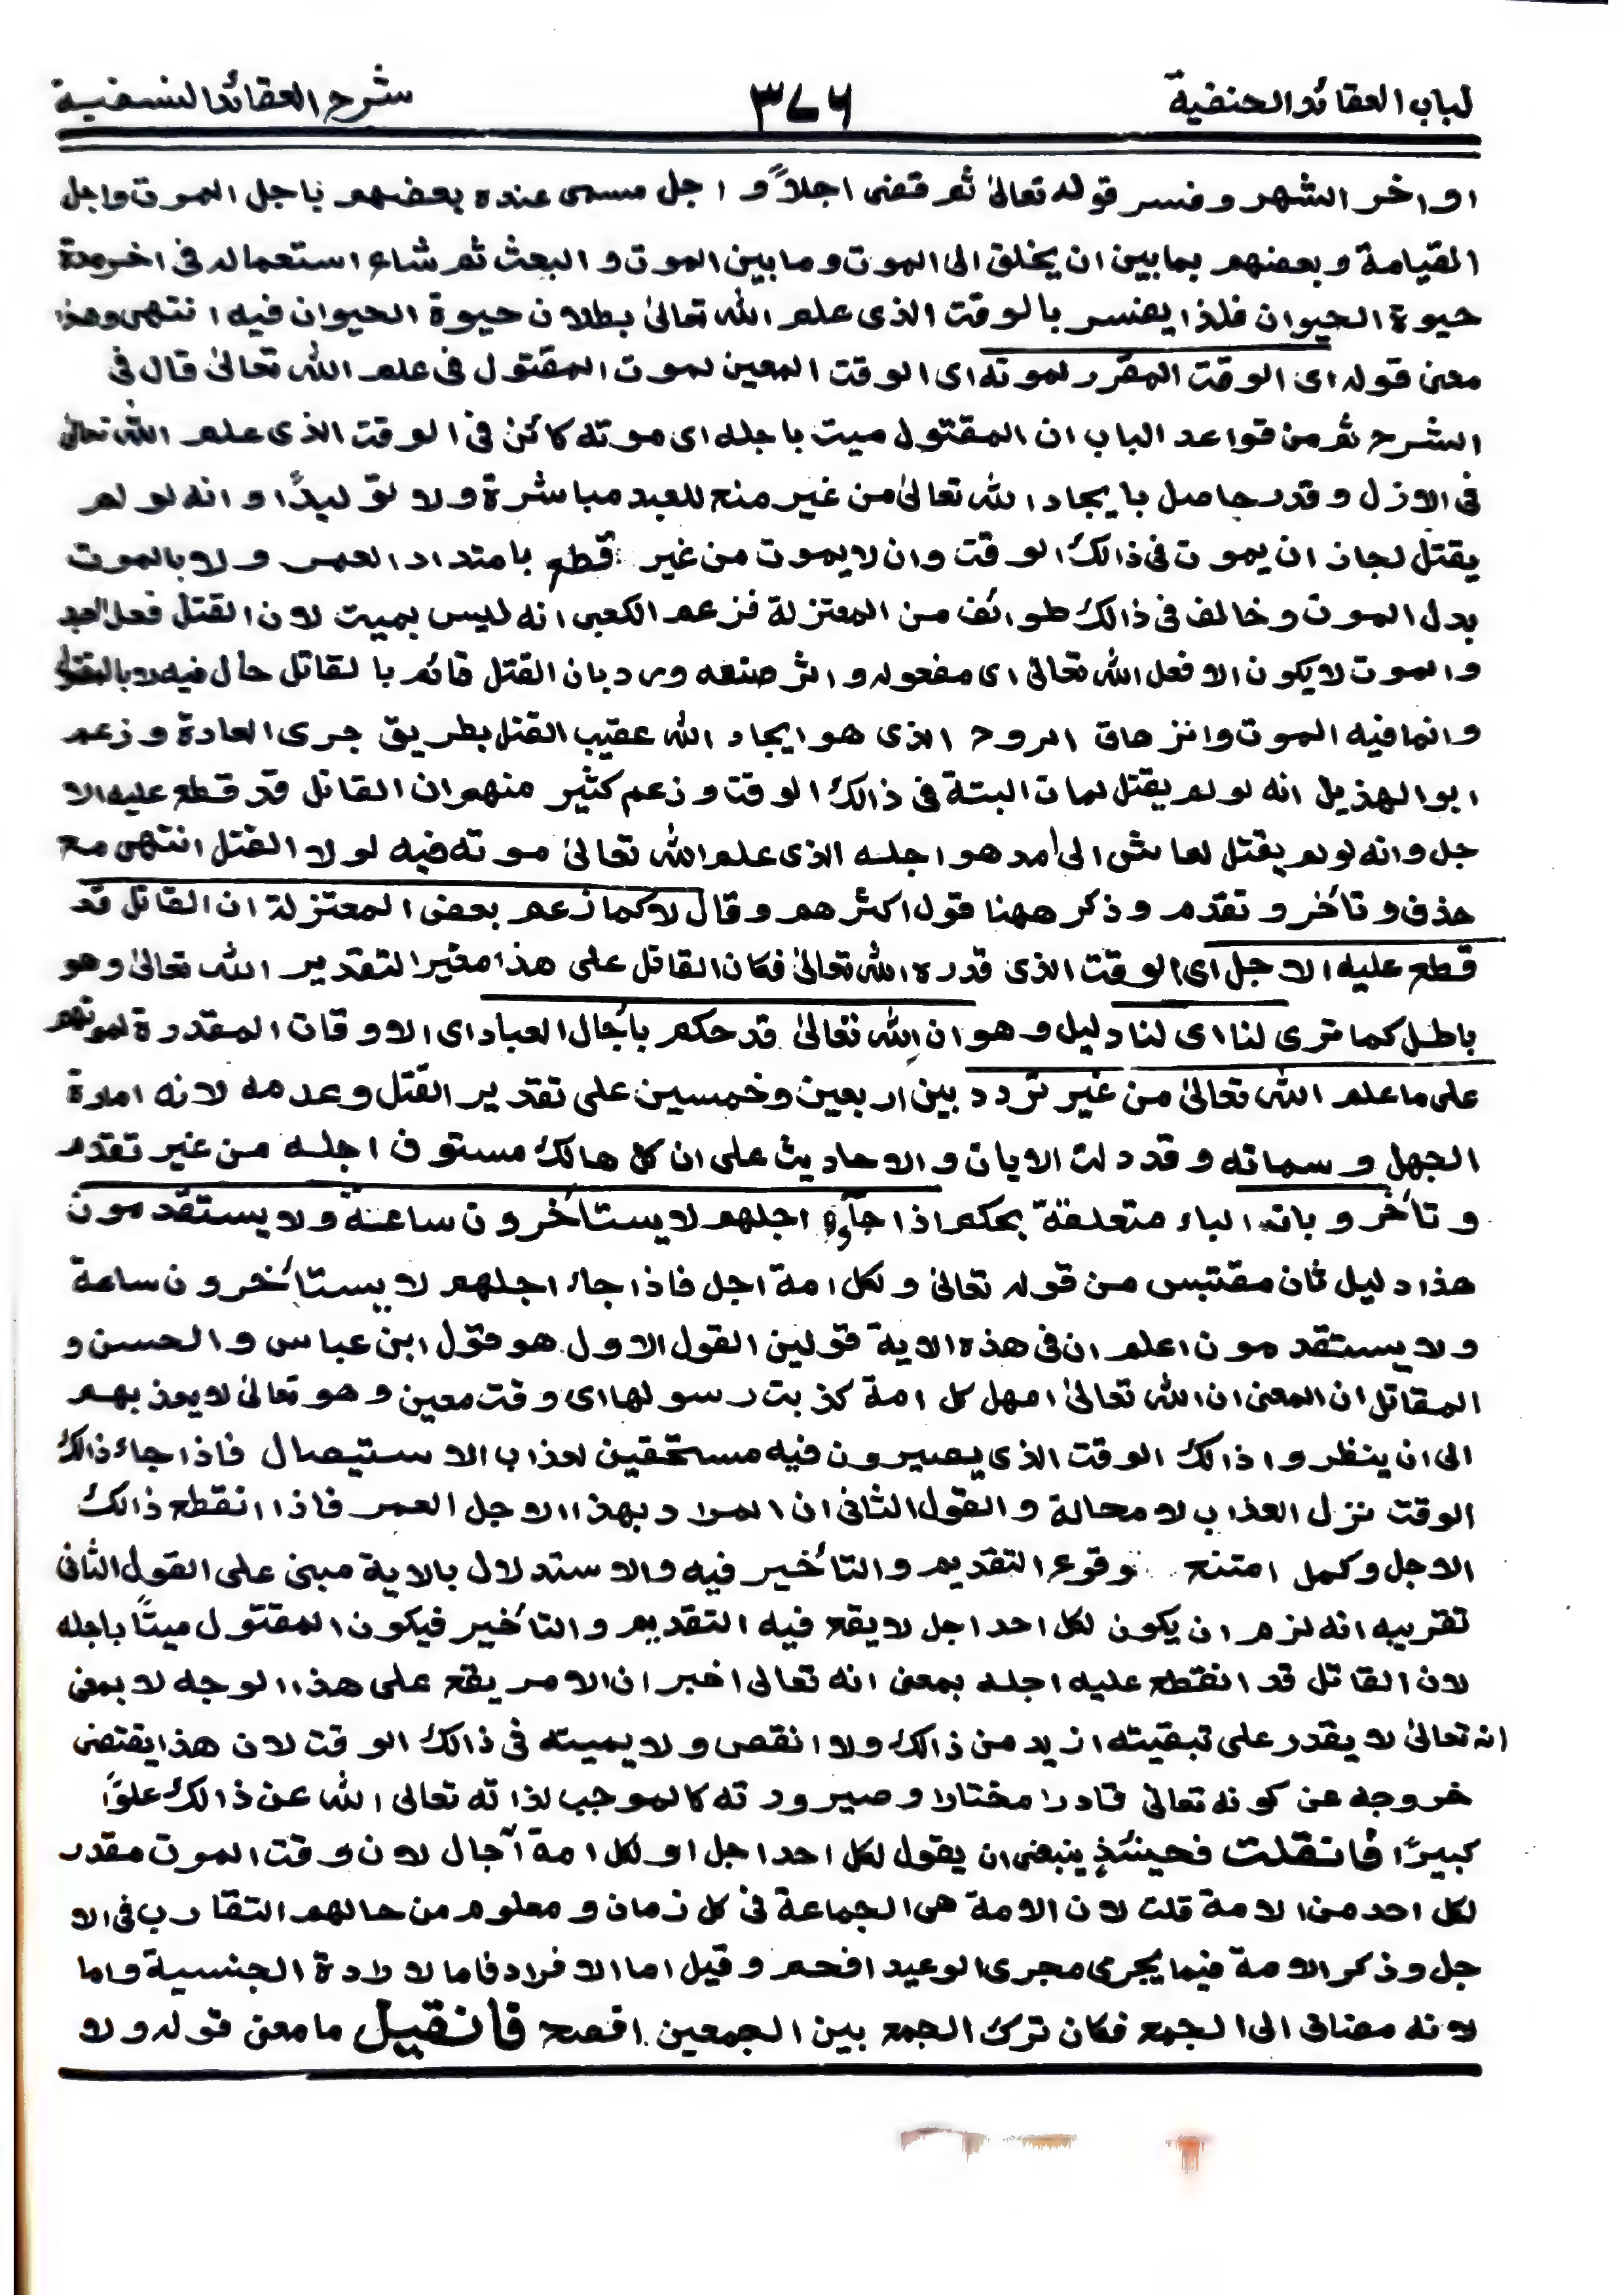 لباب العقائد الحنفية ٣٧٦ شرح العقائد النسفية
او اخر الشهر و فسر قوله تعالىٰ ثم قضى اجلاً و اجل مسمى عنده بعضهم باجل الموت واجل
القيامة و بعضهم بما بين ان يخلق الى الموت و ما بين الموت و البعث ثم شاع استعماله فى اخر مدة
حيوة الحيوان فلذا يفسر بالوقت الذى علم الله تعالىٰ بطلان حيوة الحيوان فيه انتهى وهذا
معنى قوله اى الوقت المقرر لموته اى الوقت المعين لموت المقتول فى علم الله تعالىٰ قال فى
الشرح ثم من قواعد الباب ان المقتول ميت باجله اى موته كائن فى الوقت الذى علم الله تعالىٰ
فى الازل و قدر حاصل بايجاد الله تعالىٰ من غير منع للعبد مباشرة ولا توليدًا و انه لو لم
يقتل لجاز ان يموت فى ذالك الوقت وان لا يموت من غير قطع بامتداد العمر و لا بالموت
بدل الموت و خالف فى ذالك طوائف من المعتزلة فزعم الكعبى انه ليس بميت لان القتل فعل العبد
والموت لا يكون الا فعل الله تعالىٰ اى مفعوله و اثر صنعه ورد بان القتل قائم بالقاتل حال فيه لا بالمقتول
وانما فيه الموت وانزهاق الروح الذى هو ايجاد الله عقيب القتل بطريق جرى العادة و زعم
ابو الهذيل انه لو لم يقتل لمات البتة فى ذالك الوقت و زعم كثير منهم ان القاتل قد قطع عليه الا
جل وانه لو لم يقتل لعاش الى امد هو اجله الذى علم الله تعالىٰ موته فيه لو لا القتل انتهى مع
حذف و تأخر و تقدم و ذكر ههنا قول اكثرهم و قال لا كما زعم بعض المعتزلة ان القاتل قد
قطع عليه الاجل اى الوقت الذى قدره الله تعالىٰ فكان القاتل على هذا مغير التقدير الله تعالىٰ وهو
باطل كما ترى لنا اى لنا دليل و هو ان الله تعالىٰ قد حكم بآجال العباد اى الاوقات المقدرة لموتهم
على ما علم الله تعالىٰ من غير تردد بين اربعين و خمسين على تقدير القتل وعدمه لانه امارة
الجهل و سماته و قد دلت الايات و الاحاديث على ان كل هالك مستوف اجله من غير تقدم
و تأخر و بانه الباء متعلقة بحكم اذا جآء اجلهم لا يستأخرون ساعة ولا يستقدمون
هذا دليل ثان مقتبس من قوله تعالىٰ و لكل امة اجل فاذا جاء اجلهم لا يستأخرون ساعة
ولا يستقدمون اعلم ان فى هذه الاية قولين القول الاول هو قول ابن عباس و الحسن و
المقاتل ان المعنى ان الله تعالىٰ امهل كل امة كذبت رسولها اى وقت معين و هو تعالىٰ لا يعذبهم
الى ان ينظروا ذالك الوقت الذى يصيرون فيه مستحقين لعذاب الاستيصال فاذا جاء ذالك
الوقت نزل العذاب لا محالة و القول الثانى ان المراد بهذا الاجل العمر فاذا انقطع ذالك
الاجل وكمل امتنع وقوع التقديم و التأخير فيه والاستدلال بالاية مبنى على القول الثانى
تقريبه انه لزم ان يكون لكل احد اجل لا يقع فيه التقديم و التأخير فيكون المقتول ميتًا باجله
لان القاتل قد انقطع عليه اجله بمعنى انه تعالى اخبر ان الامر يقع على هذا الوجه لا بمعنى
انه تعالىٰ لا يقدر على تبقيته ازيد من ذالك ولا انقص و لا يميته فى ذالك الوقت لان هذا يقتضى
خروجه عن كونه تعالىٰ قادرا مختارا و صيرورته كالموجب لذاته تعالى الله عن ذالك علوًا
كبيرًا فان قلت فحينئذ ينبغى ان يقول لكل احد اجل او لكل امة آجال لان وقت الموت مقدر
لكل احد من الامة قلت لان الامة هى الجماعة فى كل زمان و معلوم من حالهم التقارب فى الا
جل و ذكر الامة فيما يجرى مجرى الوعيد افحم و قيل اما الافراد فاما لارادة الجنسية واما
لانه مضاف الى الجمع فكان ترك الجمع بين الجمعين افصح فان قيل ما معنى قوله و لا